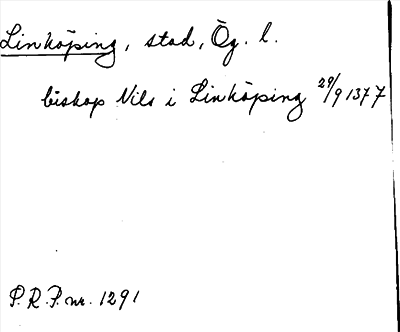 Linköping, stad, Ög. l.
biskop Nils i Linköping 29/9 1377
P.R.P. nr. 1291